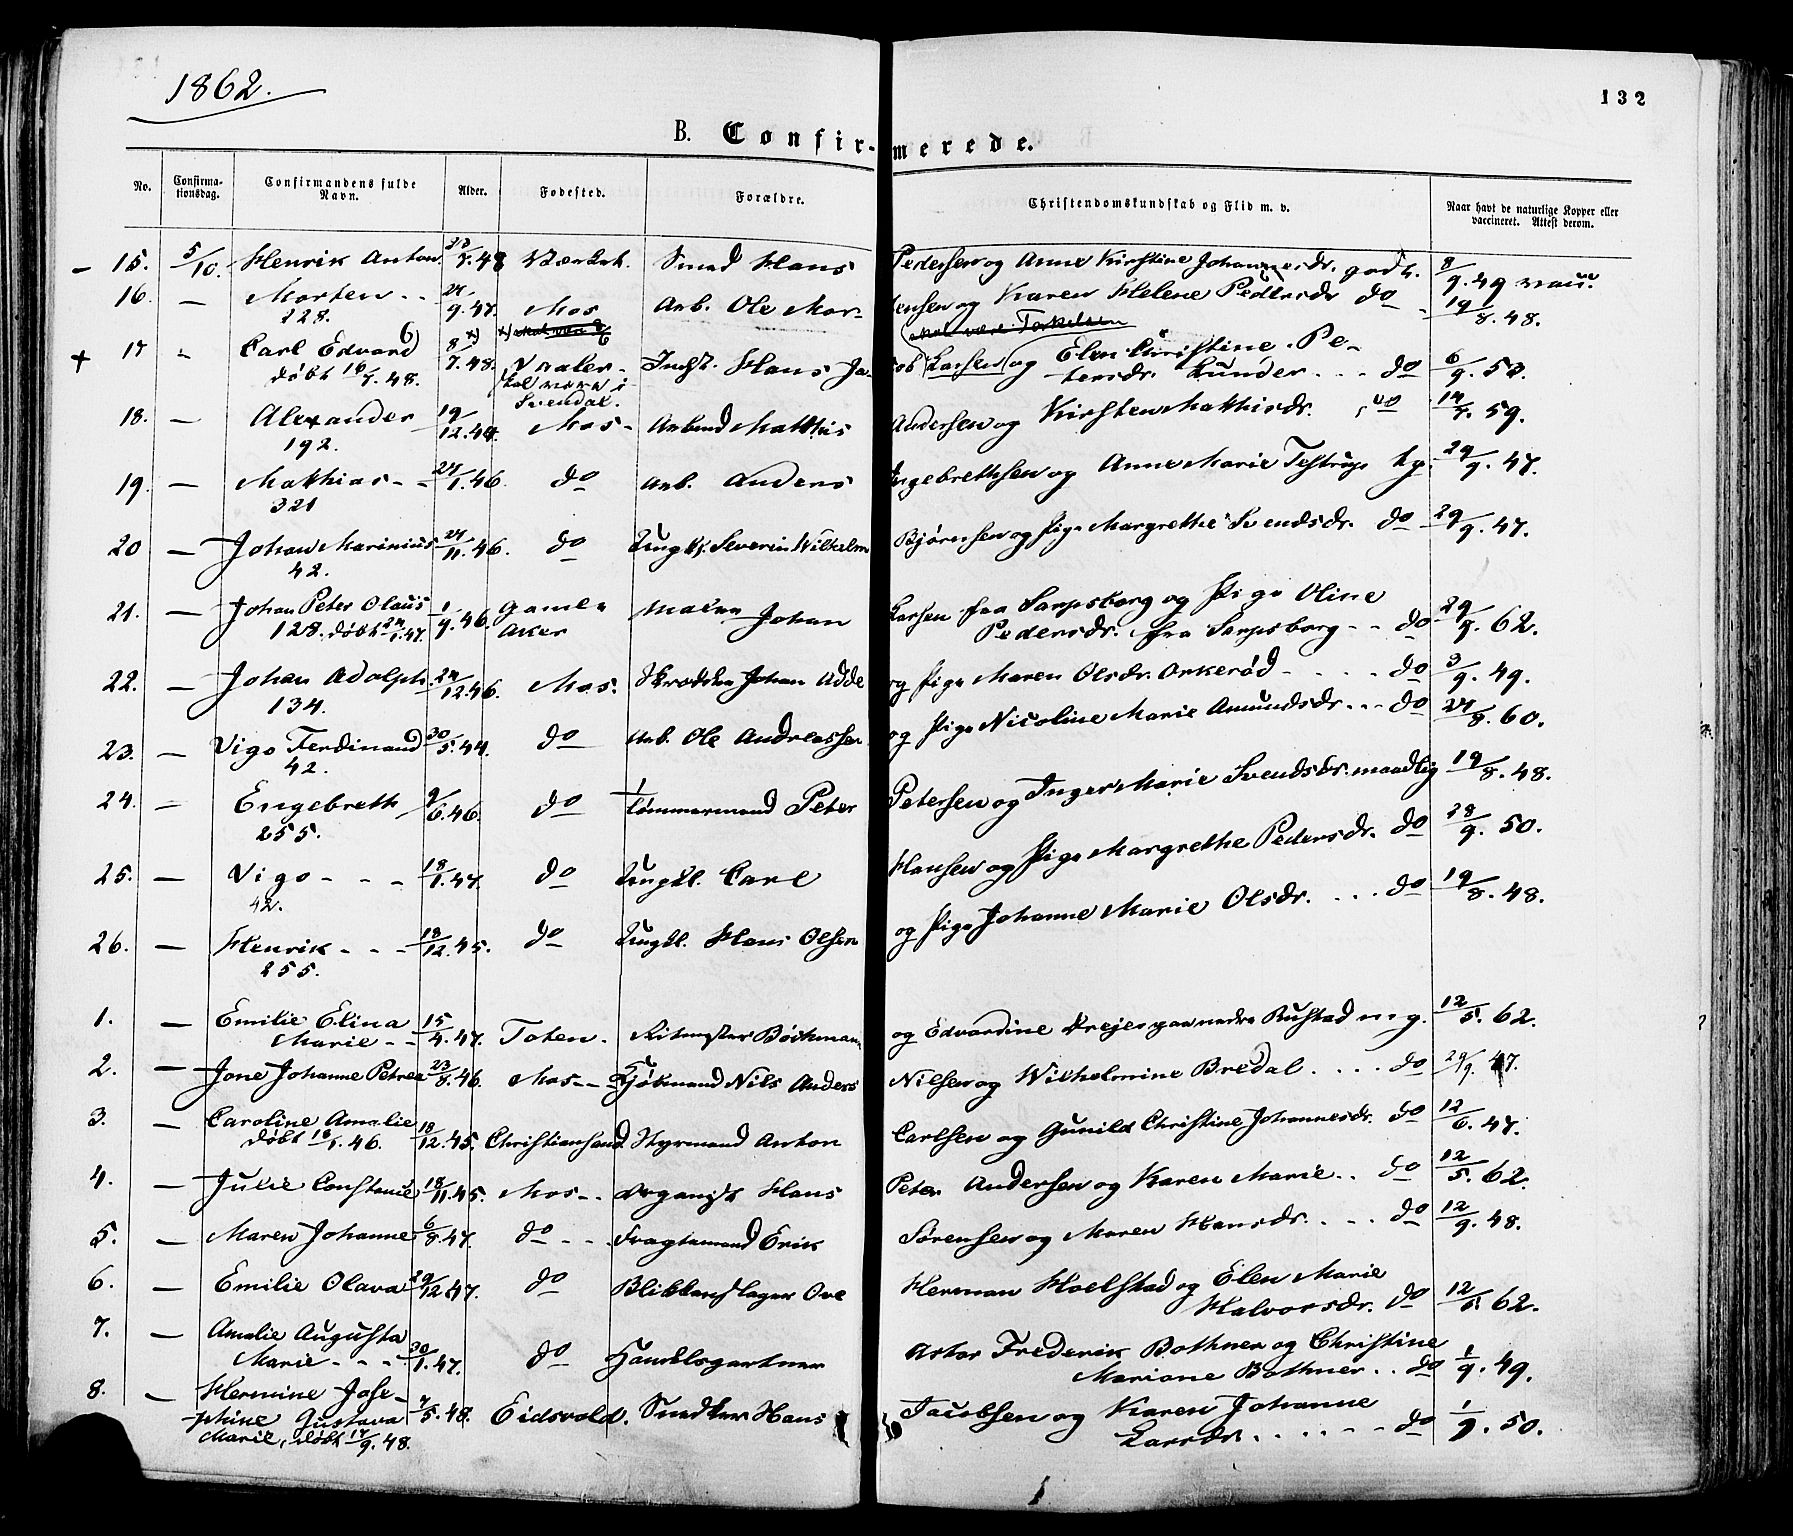 1862.
132
B. Confirmerede.
No. Confirmationsdag. Confirmandens fulde Navn. Alder. Fodested. Forældre. Christendomskundskab og Flid m. v. Naar havt de naturlige Kopper eller vaccineret. Attest derom.
15. 5/10. Henrik Anton Smed Hans Pedersen og Anne Kirstine Johannesdr. godt. 8/9. 49
16. — Morten - - 24/9. 47. Mos Arb. Ole Mortensen og Karen Helene Pedersdr do 19/8. 48.
228.
+ 17 Carl Edvard 8/7. 48. Vaaler Indst. Hans Jacob Larsen og Elen Christine Pe-
døbt 16/7. 48. skal være i Svendal. tersdr. Lunder - - - do 6/9. 53.
18. — Alexander 19/12. 44. Mos - Arbmd Matthis Andersen og Kirsten Mathisdr. do 14/7. 59.
192.
19. — Mathias - - 24/1. 46. do Arb. Anders Ingebrethsen og Anne Marie Testrup 29/9. 47.
321
20 — Johan Marinius 24/11. 46. do Ungk. Severin Wilhelm Bjørnsen og Pige Margrethe Svendsdr. do 29/9. 47.
42.
21. — Johan Peter Olaus 1/9. 46. Gamle Aker Maler Johan Larsen fra Sarpsborg og Pige Oline
128. døbt 24/1. 47. Pedersdr. fra Sarpsborg - - do 29/9. 62.
22. — Johan Adolph 24/12. 46. Mos. Skrædder Johan Adde og Pige Maren Olsdr. Orkerød - - - - do 3/9. 49.
134.
23. — Vigo Ferdinand 30/5. 44. do Arb. Ole Andreassen og Pige Nicoline Marie Amundsdr. - - do 24/8. 60.
42.
24. — Engebreth 9/6. 46. do Tømmermand Peter Petersen og Inger Marie Svendsdr. maadlig 19/8. 48.
255.
25. — Vigo - - - 18/1. 47. do Ungkl. Carl Hansen og Pige Margrethe Pedersdr. do 28/9. 50.
42.
26. — Henrik - - - 18/12. 45. do Ungkl. Hans Olsen og Pige Johanne Marie Olsdr. - - - do 19/8. 48.
255.
1. — Emilie Elina 15/4. 47. Toten. Ritmester Bøckmann og Edvardine Rustad mg. 12/5. 62.
Marie - -
2. — Jone Johanne Petrea 23/8. 46. Mos - - Kjøbmand Nils Anders Nilsen og Wilhelmine Bredal - - - - do 29/9. 47.
3. — Caroline Amalie 18/12. 45. Christiansand Styrmand Anton Carlsen og Gunild Christine Johannesdr. do 12/6. 47.
døbt 18/1. 46.
4. — Julie Constance 18/11. 45. Mos - - Organist Hans Peter Andersen og Karen Marie - - do 12/5. 62.
5. — Maren Johanne 6/8. 47. do - - - Fragtemand Erik Sørensen og Maren Hansdr. - - - do 12/9. 48.
6. — Emilie Olava 29/12. 47. do Blikkenslager Ove Herman Hoelstad og Elen Marie
Halvorsdr. do 12/5. 62.
7. — Amalie Augusta 30/1. 47. do Handelsgartner Astor Frederik Bothner og Christine
Marie - - - Mariane Bothner - - do 1/9. 49.
8. — Hermine Jose- 7/5. 48. Eidsvold. Snedker Hans Jacobsen og Karen Johanne
phine Gustava Larsdr. - - - - - do 1/9. 50.
Marie, døbt 17/9. 48.